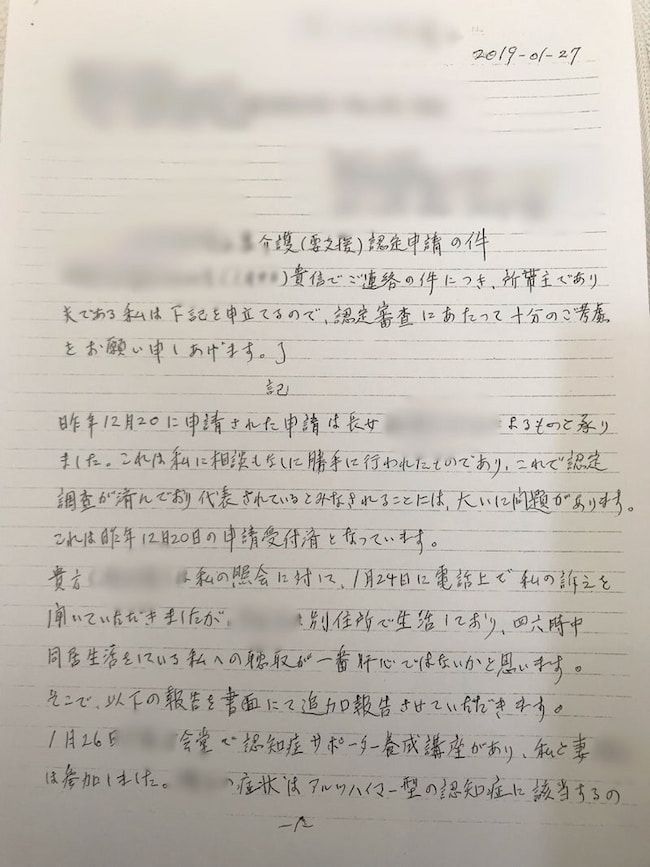 2019-01-27
介護(要支援)認定申請の件
)貴信でご連絡の件につき、所帯主であり
夫である私は下記を申立てるので、認定審査にあたって十分のご考慮
をお願い申しあげます。
記
昨年12月20に申請された申請は長女 よるものと承り
ました。これは私に相談もなしに勝手に行われたものであり、これで認定
調査が済んでおり代表されているとみなされることには、大いに問題があります。
これは昨年12月20日の申請受付済となっています。
貴方 は私の照会に対して、1月24日に電話上で私の訴えを
聞いていただきましたが、 別住所で生活しており、四六時中
同居生活をしている私への聴取が一番肝心ではないかと思います。
そこで、以下の報告を書面にて追加報告させていただきます。
1月26日 会堂で認知症サポーター養成講座があり、私と妻
は参加しました。 の症状はアルツハイマー型の認知症に該当するの